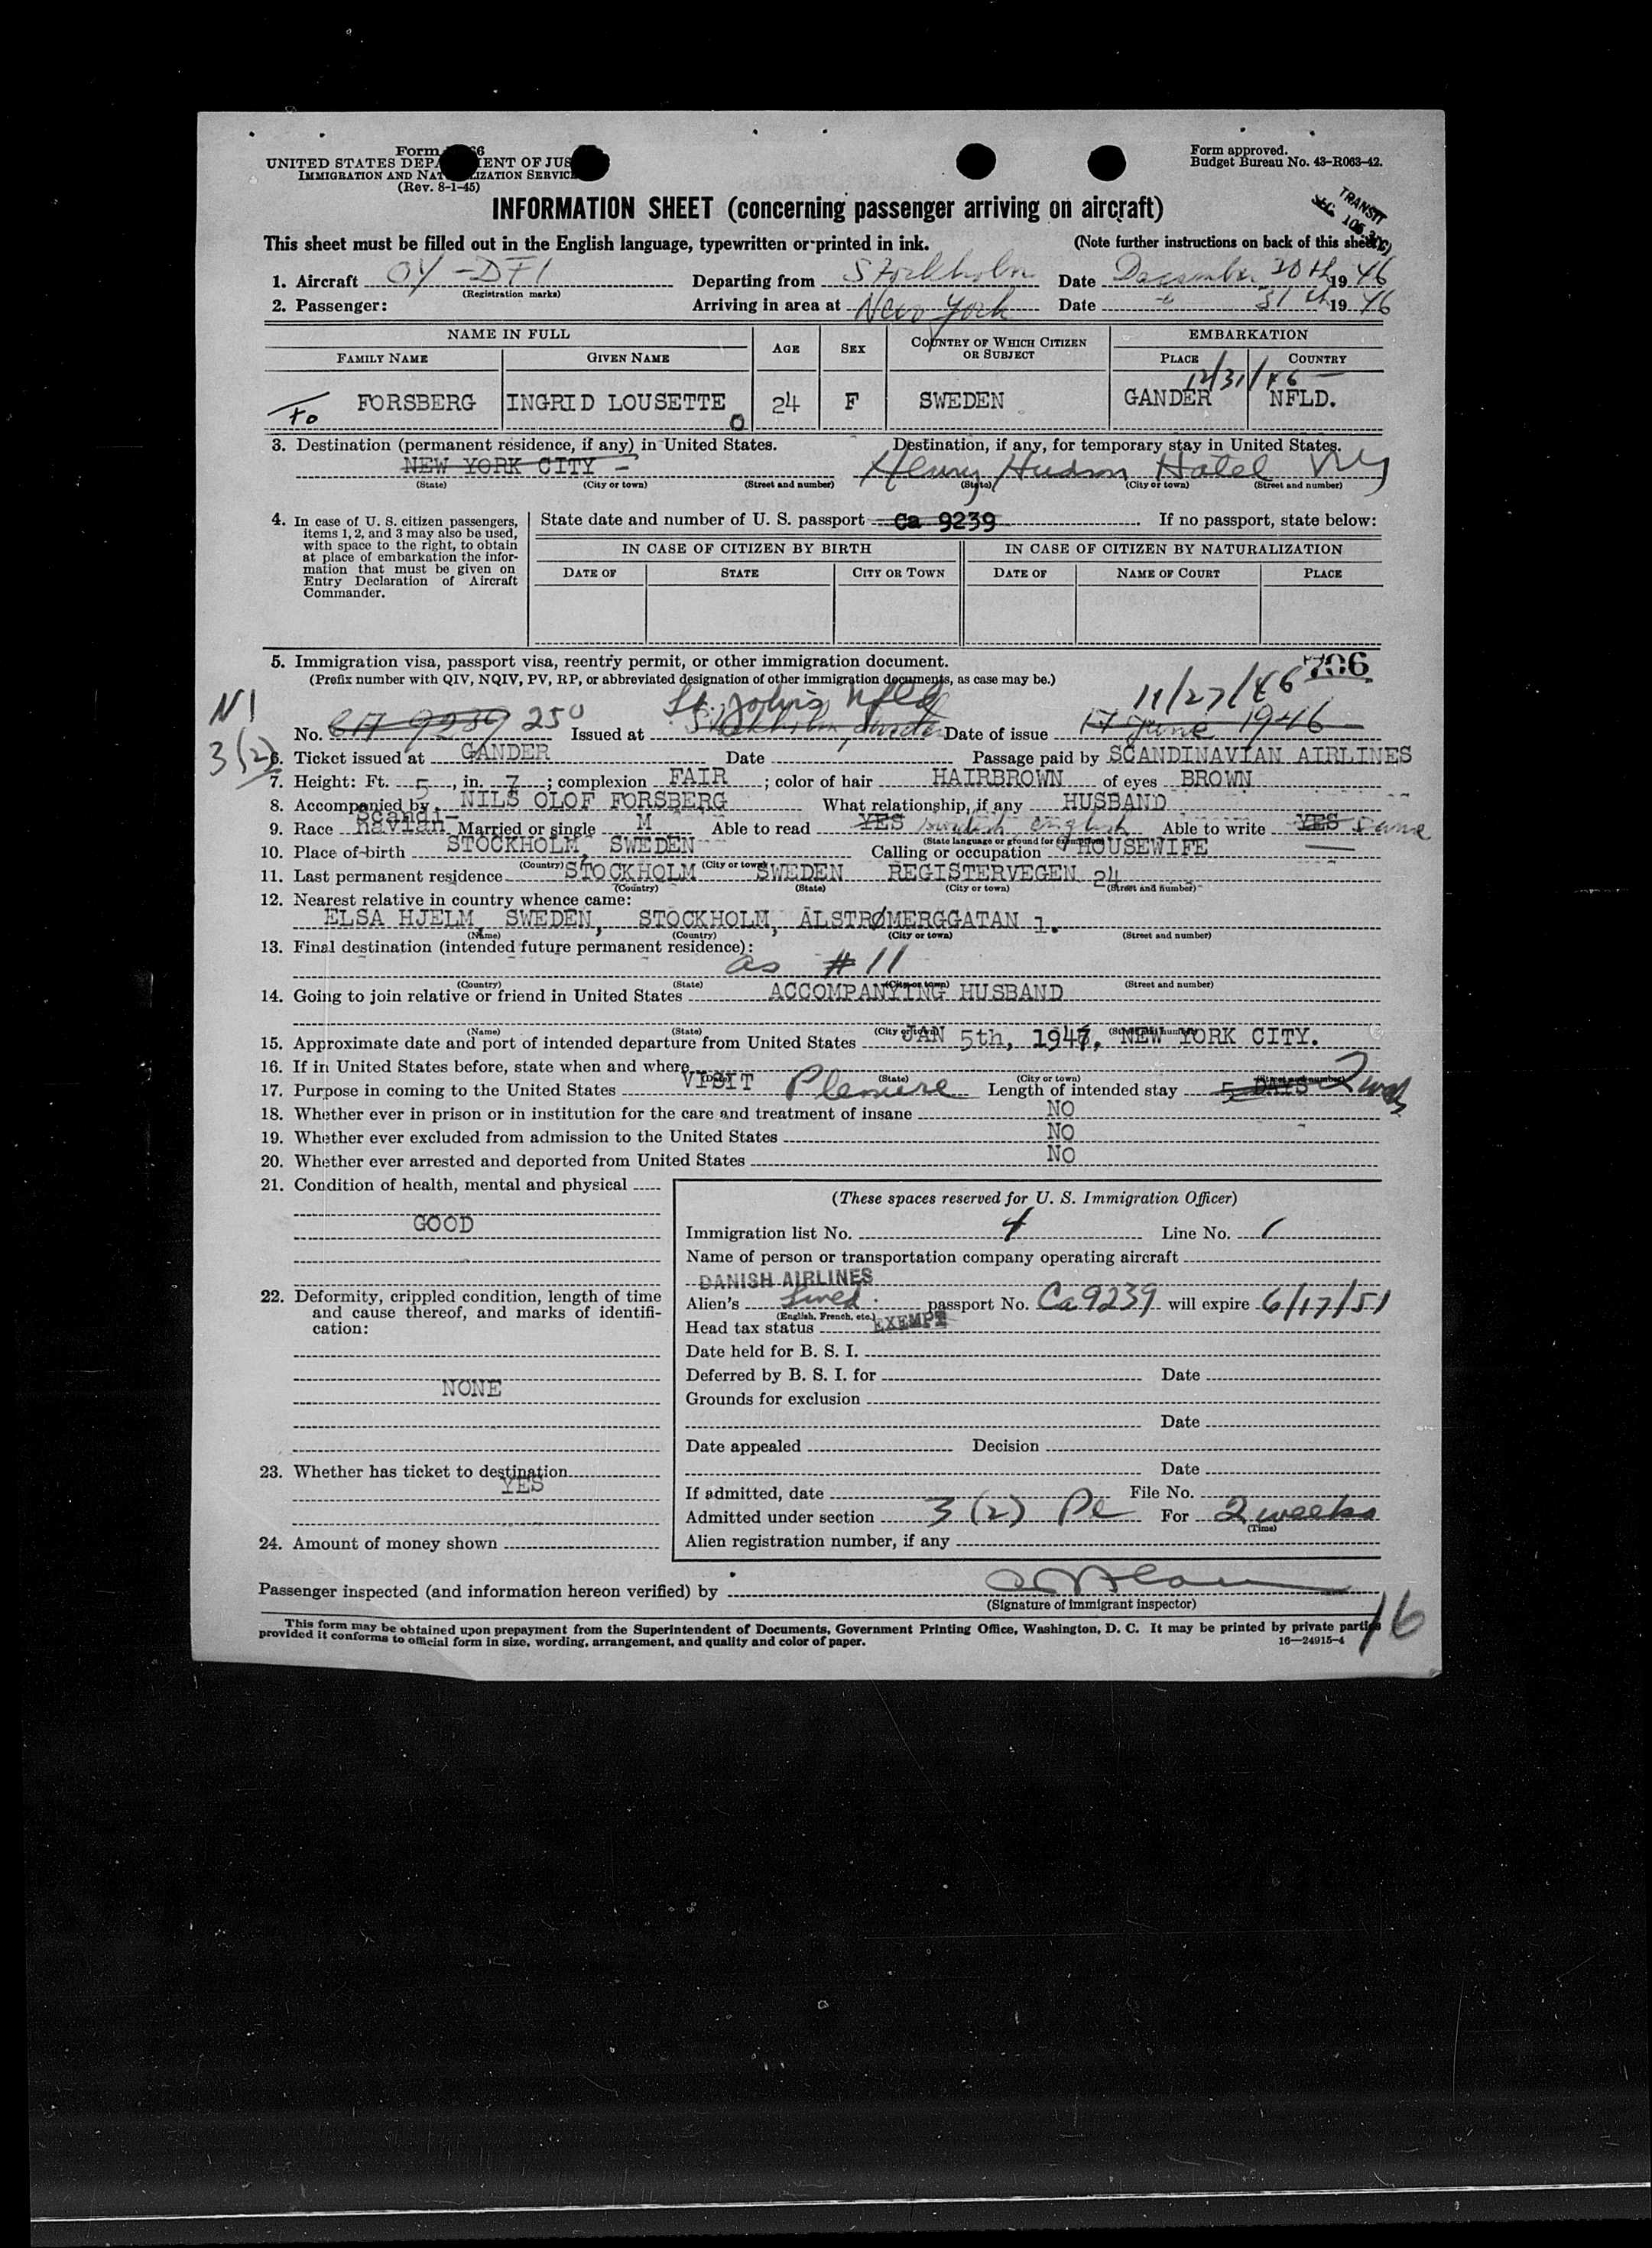 Form 66
UNITED STATES DEPA ENT OF JUS
IMMIGRATION AND NAT LIZATION SERVIC
(Rev. 8-1-45)
Form approved.
Budget Bureau No. 43-R063-42.
TRANSIT
INFORMATION SHEET (concerning passenger arriving on aircraft)
This sheet must be filled out in the English language, typewritten or printed in ink. (Note further instructions on back of this sheet)
1. Aircraft OY-DFI Departing from Stockholm Date December 30th 1946
(Registration marks)
2. Passenger: Arriving in area at New York Date 31th 1946
NAME IN FULL AGE SEX COUNTRY OF WHICH CITIZEN OR SUBJECT EMBARKATION
FAMILY NAME GIVEN NAME PLACE COUNTRY
12/31/46
FORSBERG INGRID LOUSETTE 24 F SWEDEN GANDER NFLD.
3. Destination (permanent residence, if any) in United States. Destination, if any, for temporary stay in United States.
NEW YORK CITY - Henry Hudson Hotel NY
(State) (City or town) (Street and number) (State) (City or town) (Street and number)
4. In case of U. S. citizen passengers, items 1, 2, and 3 may also be used, with space to the right, to obtain at place of embarkation the information that must be given on Entry Declaration of Aircraft Commander.
State date and number of U. S. passport Ca 9239 If no passport, state below:
IN CASE OF CITIZEN BY BIRTH IN CASE OF CITIZEN BY NATURALIZATION
DATE OF STATE CITY OR TOWN DATE OF NAME OF COURT PLACE
5. Immigration visa, passport visa, reentry permit, or other immigration document. 706
(Prefix number with QIV, NQIV, PV, RP, or abbreviated designation of other immigration documents, as case may be.)
St. John's Nfld 11/27/46
No. CA 9239 250 Issued at Stockholm, Sweden Date of issue 17 June 1946
3(2)
6. Ticket issued at GANDER Date Passage paid by SCANDINAVIAN AIRLINES
7. Height: Ft. 5, in. 7; complexion FAIR; color of hair HAIRBROWN of eyes BROWN
8. Accompanied by NILS OLOF FORSBERG What relationship, if any HUSBAND
9. Race Scandi-navian Married or single M Able to read YES swedish english Able to write YES same
(State language or ground for exemption)
10. Place of birth STOCKHOLM, SWEDEN Calling or occupation HOUSEWIFE
(Country) (City or town)
11. Last permanent residence STOCKHOLM SWEDEN REGISTERVEGEN 24
(Country) (State) (City or town) (Street and number)
12. Nearest relative in country whence came:
ELSA HJELM, SWEDEN, STOCKHOLM, ALSTRØMERGGATAN 1.
(Name) (Country) (City or town) (Street and number)
13. Final destination (intended future permanent residence):
as #11
(Country) (State) (City or town) (Street and number)
14. Going to join relative or friend in United States ACCOMPANYING HUSBAND
(Name) (State) (City or town) (Street and number)
15. Approximate date and port of intended departure from United States JAN 5th, 1947, NEW YORK CITY.
16. If in United States before, state when and where
(Date) (State) (City or town) (Street and number)
17. Purpose in coming to the United States VISIT Pleasure Length of intended stay 5 DAYS 2 wks
18. Whether ever in prison or in institution for the care and treatment of insane NO
19. Whether ever excluded from admission to the United States NO
20. Whether ever arrested and deported from United States NO
21. Condition of health, mental and physical
GOOD
22. Deformity, crippled condition, length of time and cause thereof, and marks of identification:
NONE
23. Whether has ticket to destination
YES
24. Amount of money shown
(These spaces reserved for U. S. Immigration Officer)
Immigration list No. 4 Line No. 1
Name of person or transportation company operating aircraft
DANISH AIRLINES
Alien's Swed. passport No. Ca9239 will expire 6/17/51
(English, French, etc.)
Head tax status EXEMPT
Date held for B. S. I.
Deferred by B. S. I. for Date
Grounds for exclusion
Date
Date appealed Decision
Date
If admitted, date File No.
Admitted under section 3(2) Pl For 2 weeks
(Time)
Alien registration number, if any
Passenger inspected (and information hereon verified) by
(Signature of immigrant inspector)
16
This form may be obtained upon prepayment from the Superintendent of Documents, Government Printing Office, Washington, D. C. It may be printed by private parties
provided it conforms to official form in size, wording, arrangement, and quality and color of paper. 16—24915-4